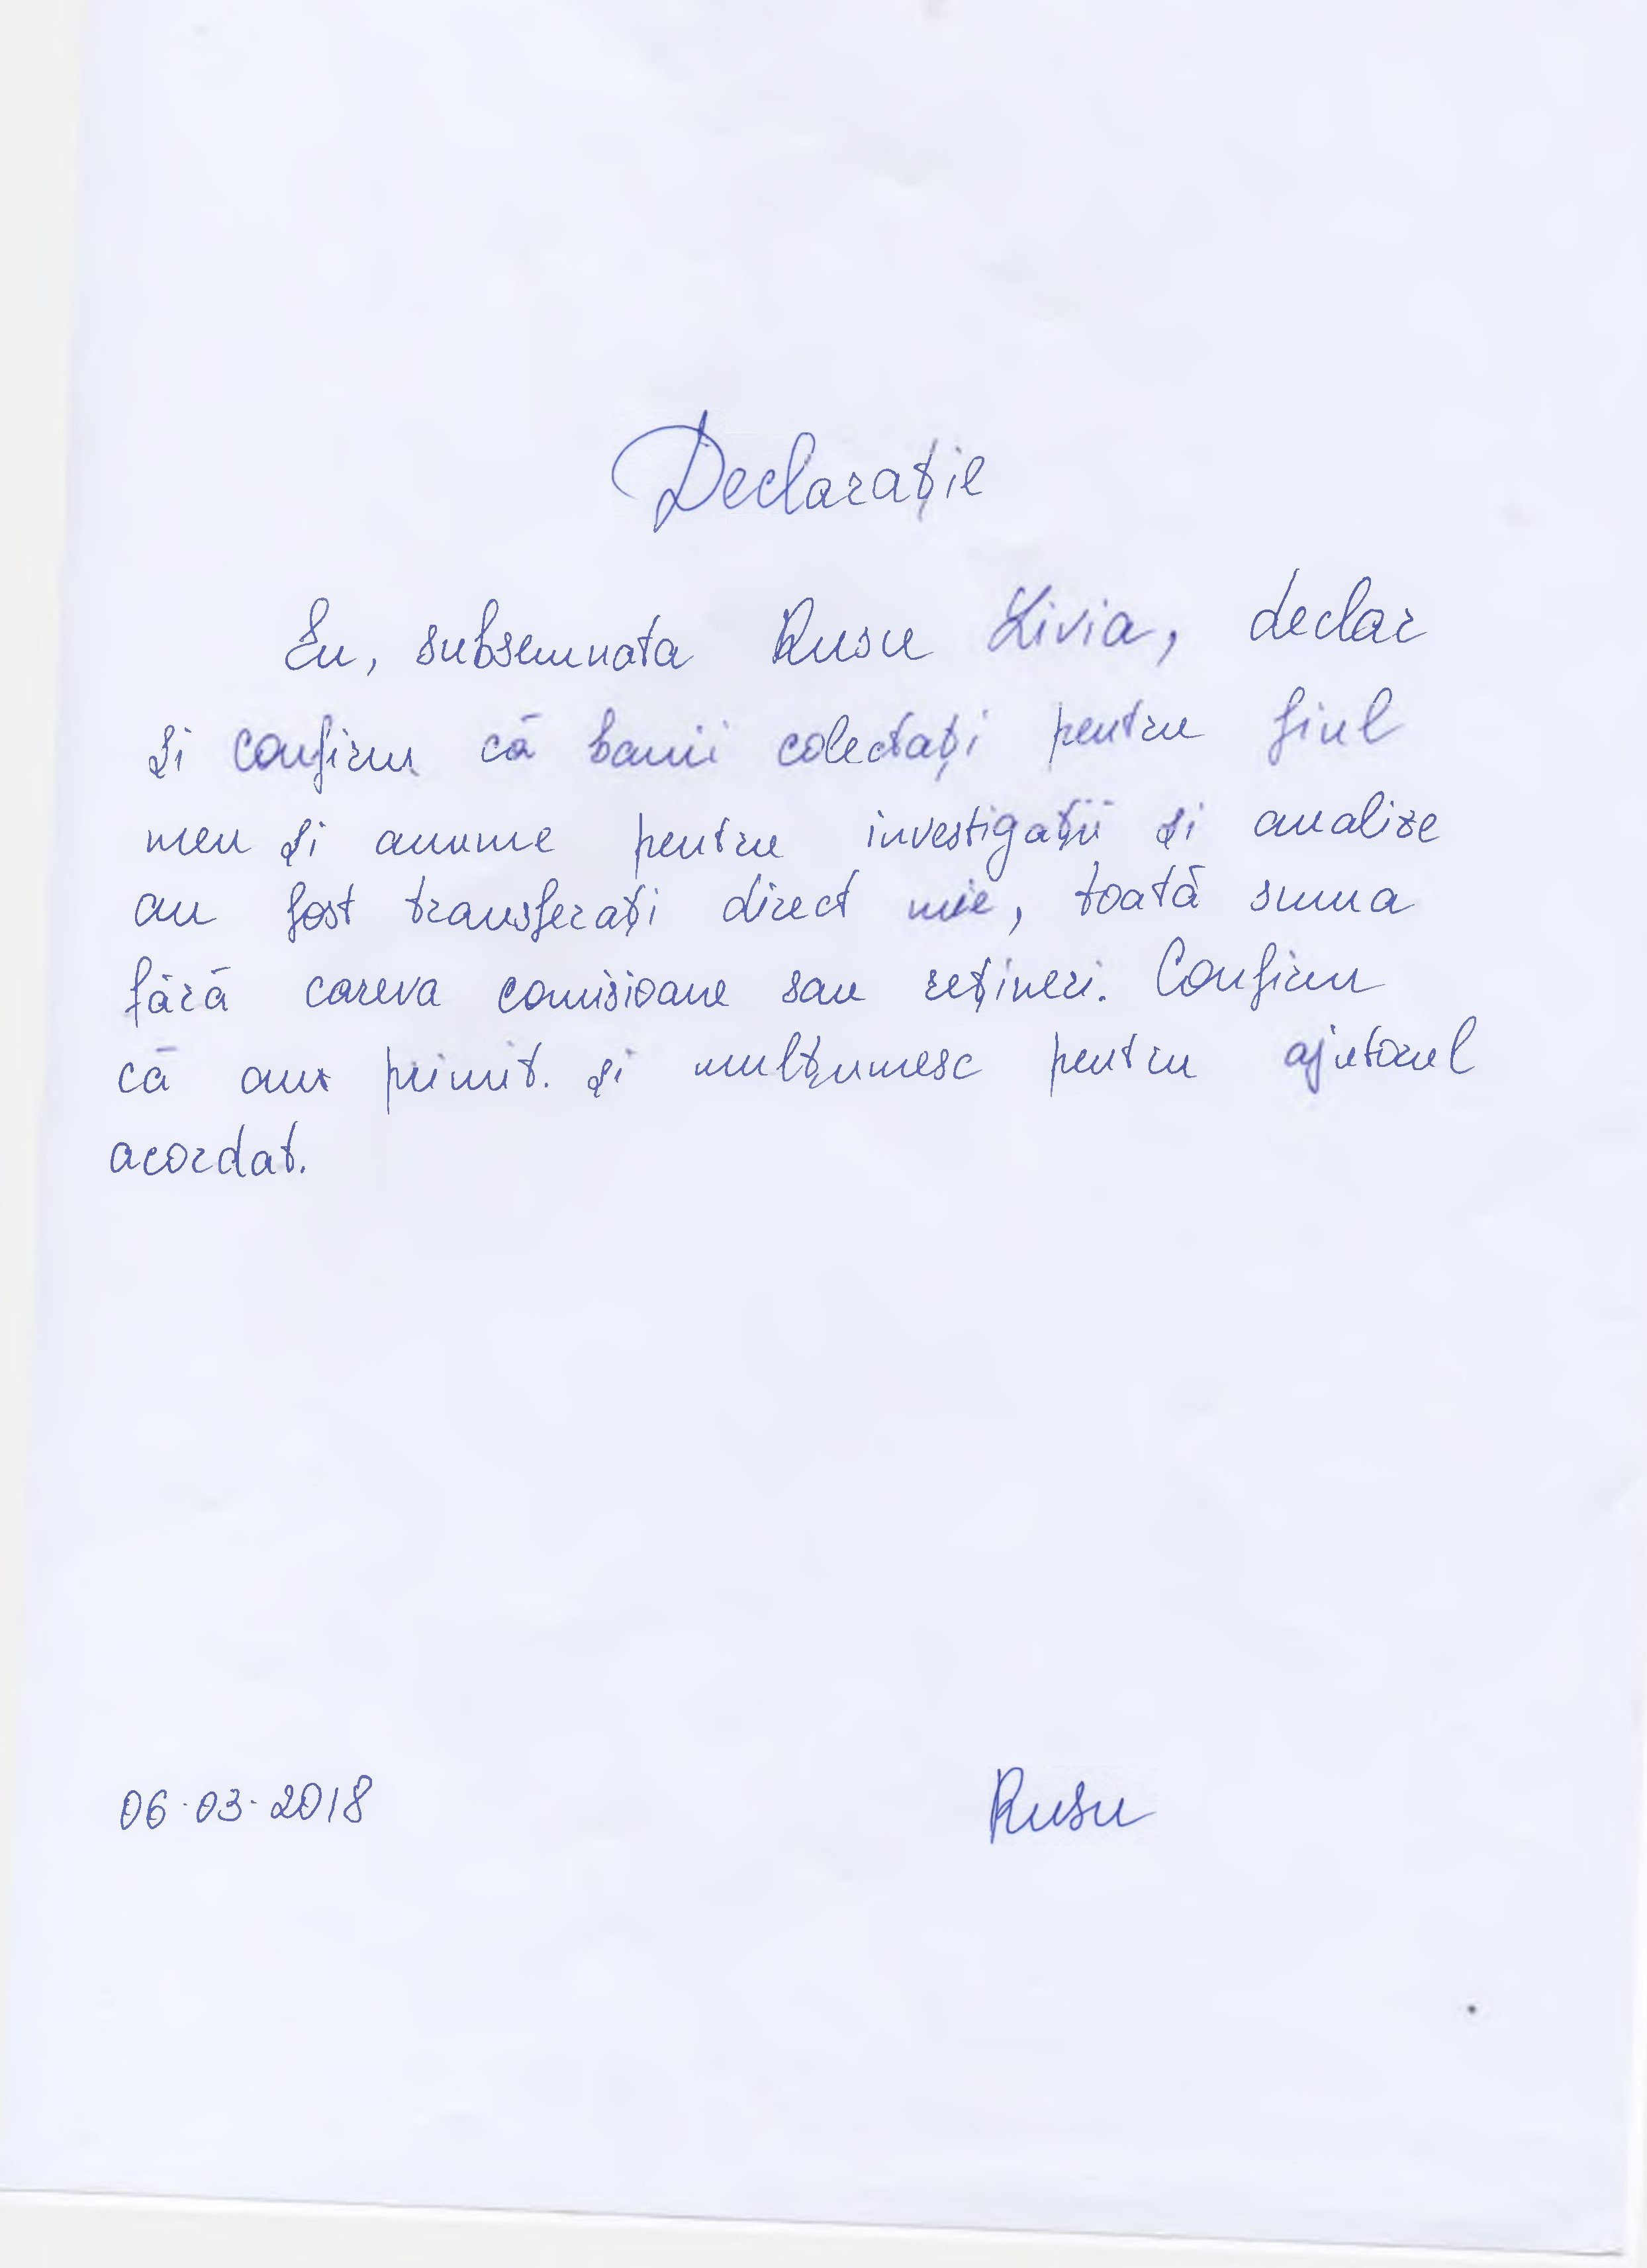 Declarație
Eu, subsemnata Rusu Livia, declar
și confirm că banii colectați pentru fiul
meu și anume pentru investigații și analize
au fost transferați direct mie, toată suma
fără careva comisioane sau rețineri. Confirm
că am primit. și mulțumesc pentru ajutorul
acordat.
06.03.2018 Rusu